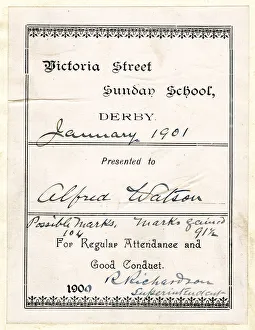 Victoria Street
Sunday School,
DERBY.
January 1901
Presented to
Alfred Watson
Possible Marks, Marks gained
104 91½
For Regular Attendance and
Good Conduct.
1900 R Richardson
Superintendent